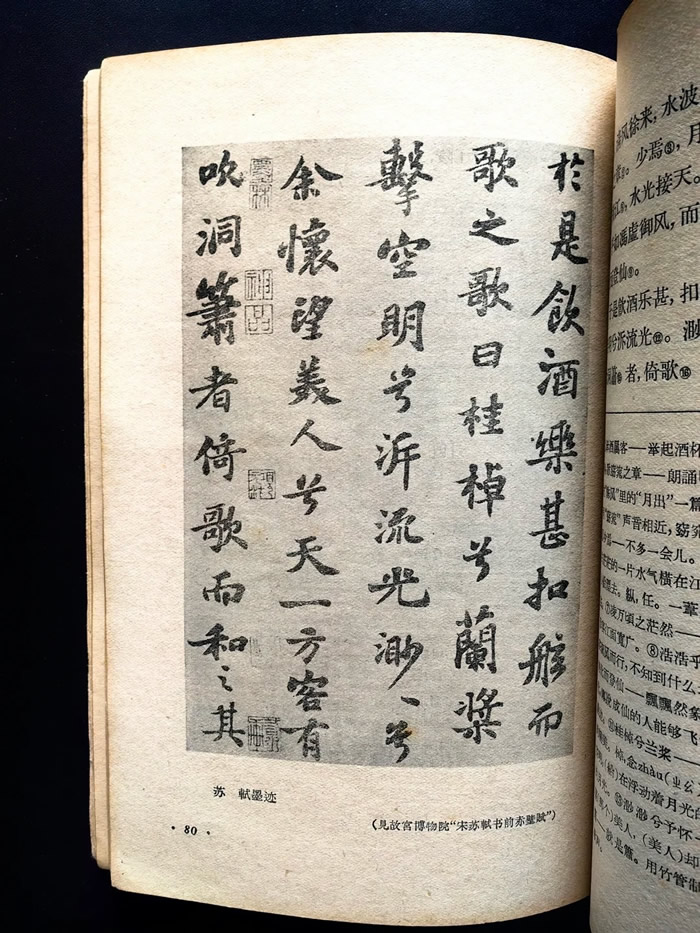 於是飲酒樂甚扣舷而
歌之歌曰桂棹兮蘭槳
擊空明兮泝流光渺〻兮
余懷望美人兮天一方客有
吹洞簫者倚歌而和之其
神品
苏 軾墨迹
(見故宮博物院“宋苏軾书前赤壁賦”)
· 80 ·
风徐来，水波
少焉⑤，月
，水光接天。
馮虛御风，而
仙⑨。
飲酒乐甚，扣
兮泝流光⑫。渺
者，倚歌⑯
客——举起酒杯
窕之章——朗誦
里的“月出”一篇
声音相近，窈
——不多一会儿。
的一片水气横在江
去。縱，任。一葦
⑦凌万頃之茫然——
江面寬广。⑧浩浩乎
而行，不知到什么
登仙——飄飄然
成仙的人能够飞
桂棹兮兰桨——
棹，念zhào(ㄓㄠ
在浮动着月光的
渺渺兮予怀——
个)美人，(美人)却
是簫。用竹管制